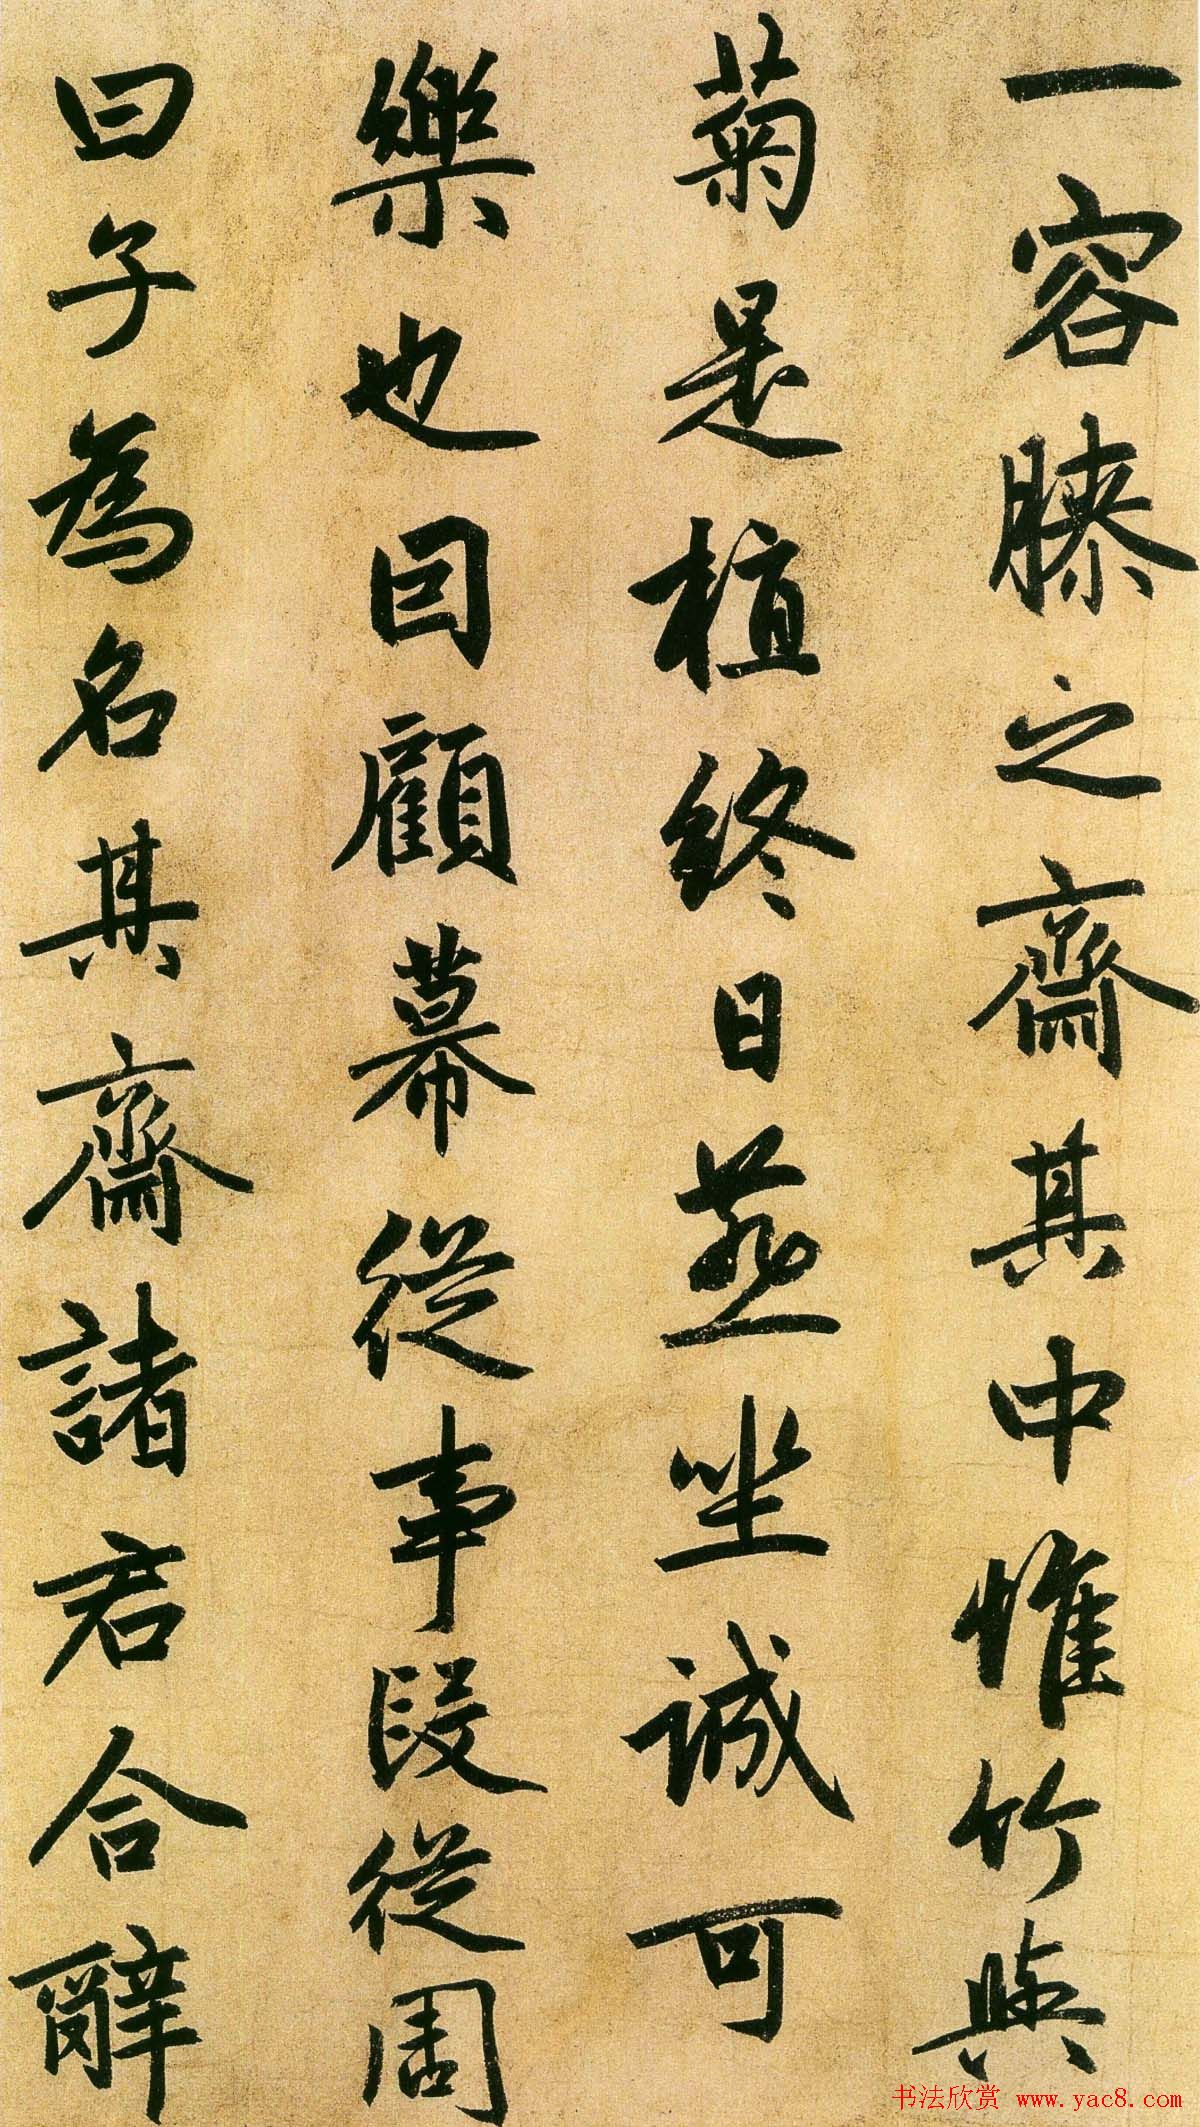 一容膝之齋其中惟竹與
菊是植終日燕坐誠可
樂也因顧幕從事段從周
曰子為名其齋諸君合辭
书法欣赏 www.yac8.com